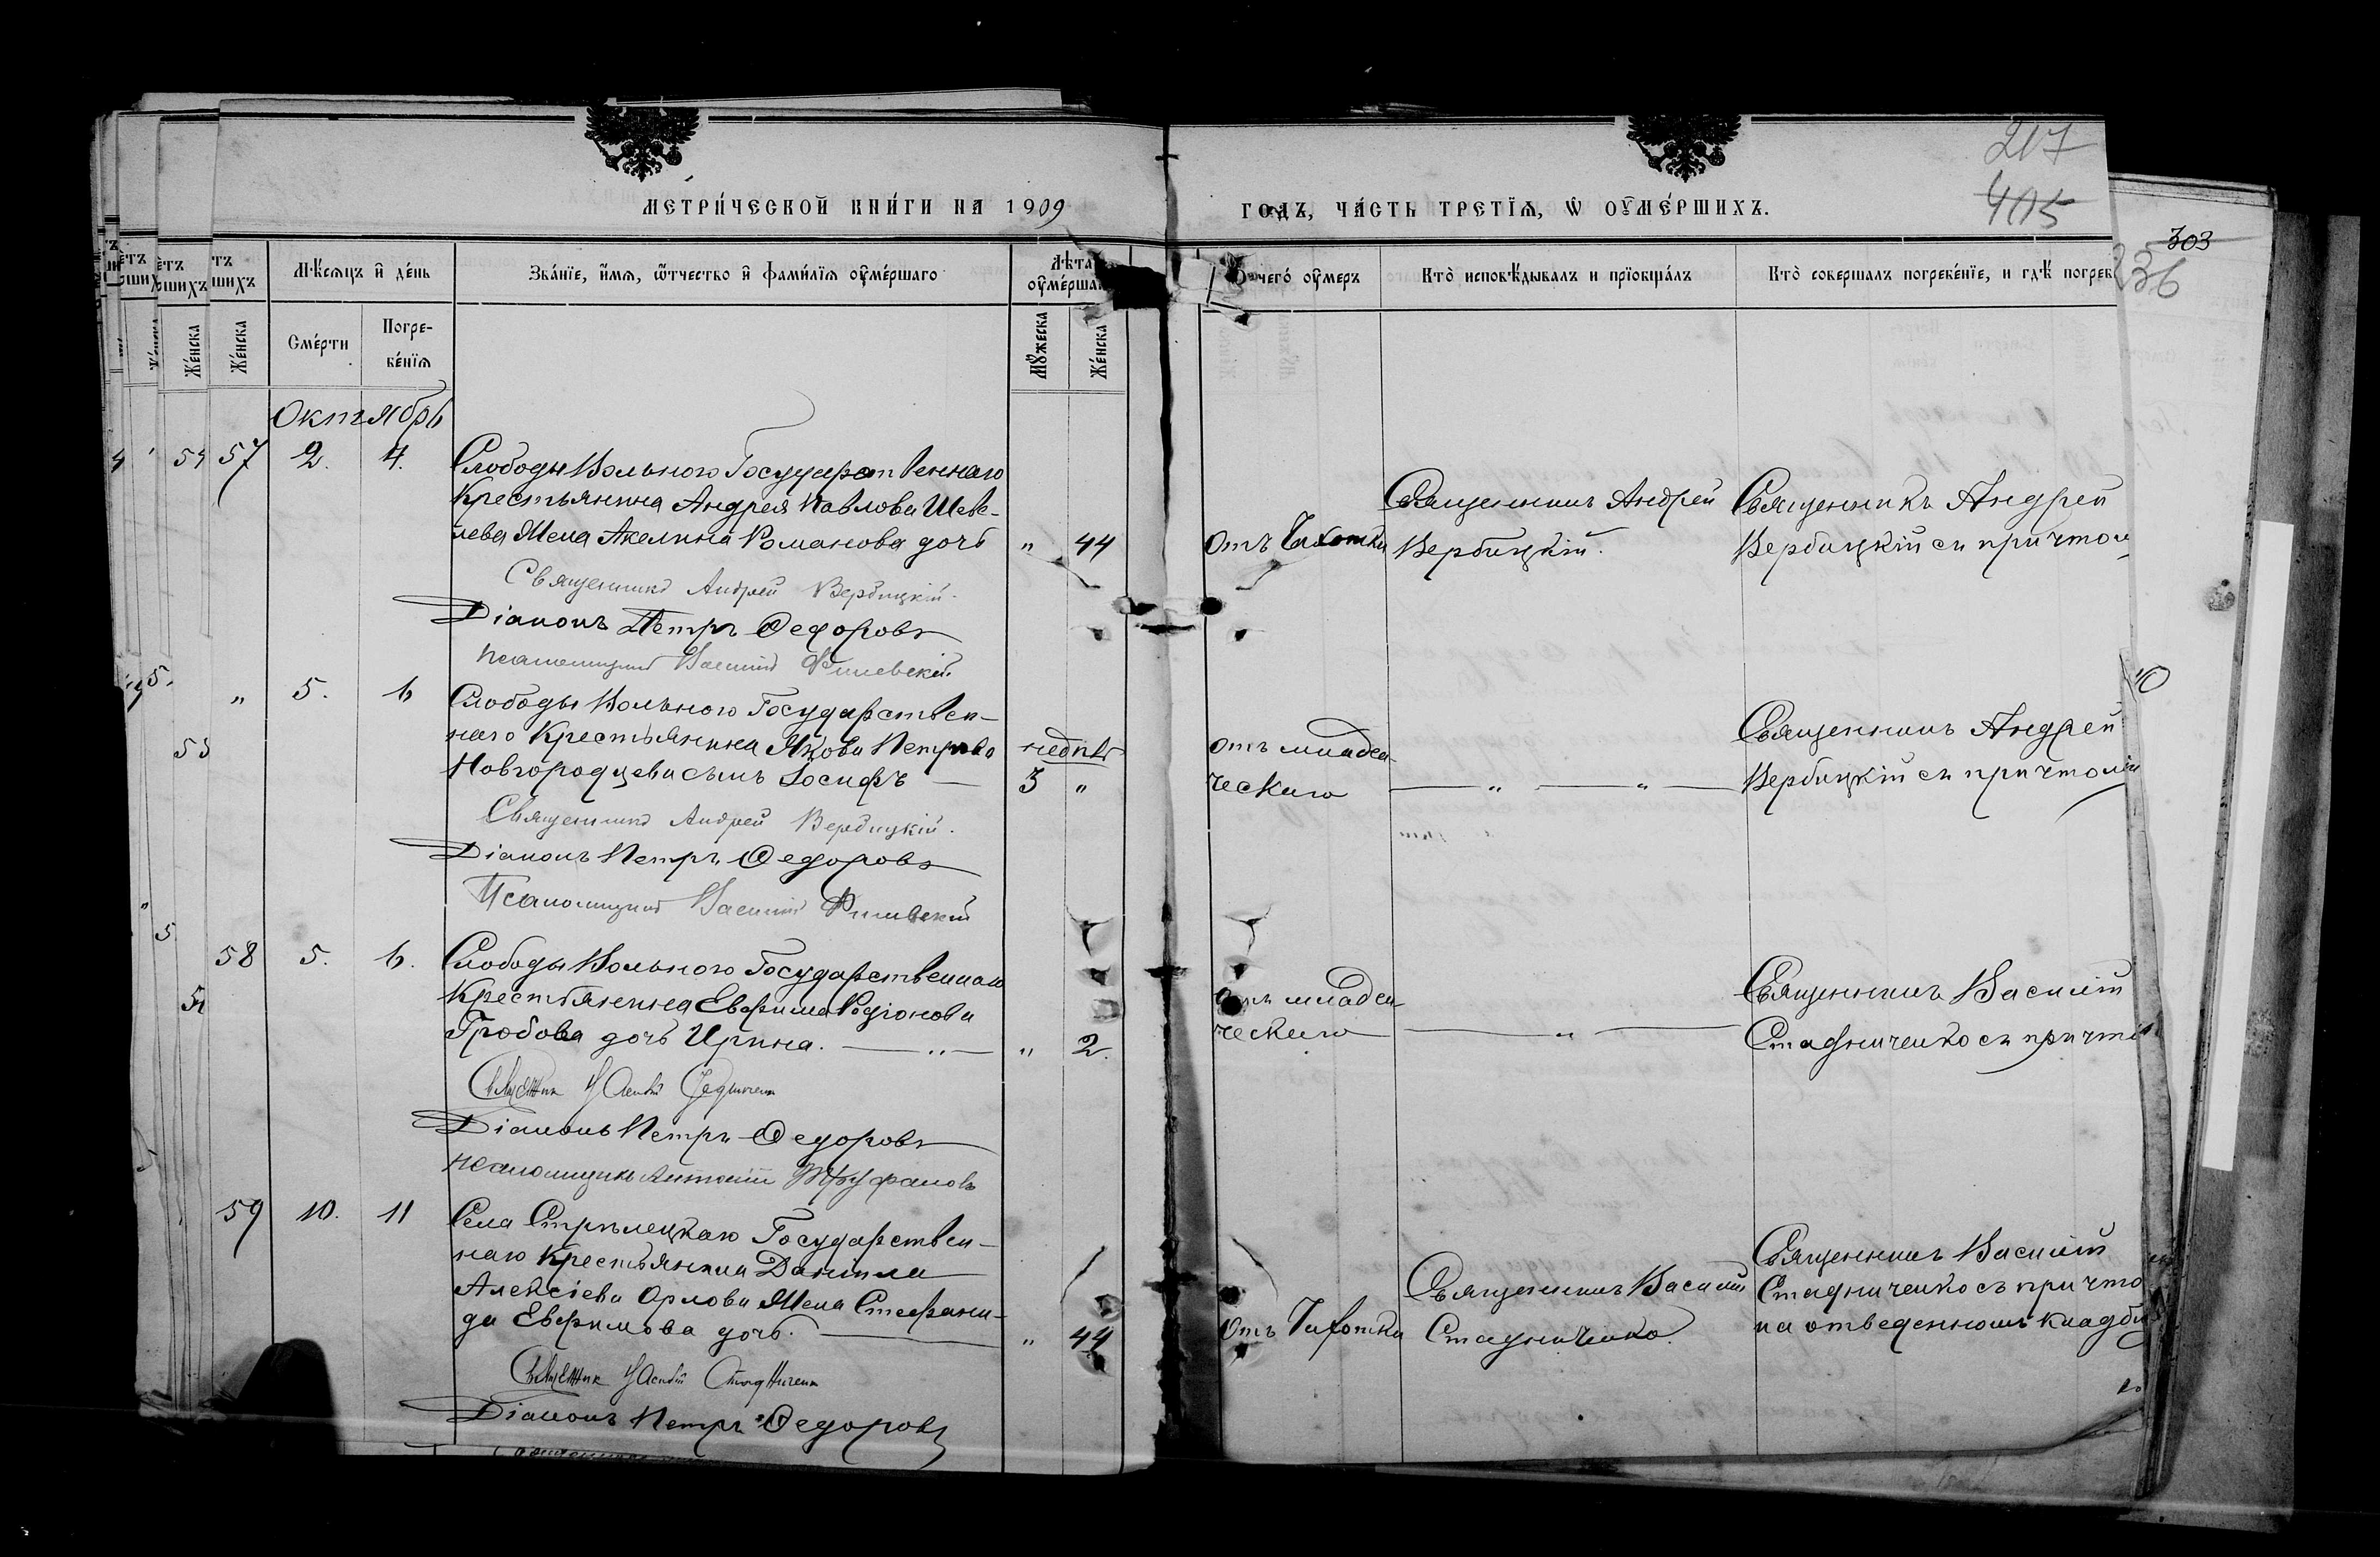 217
405
303
236
МЕТРИ́ЧЕСКОЙ КНИ́ГИ НА 1909
ГОДЪ, ЧА́СТЬ ТРЕТЇѦ, Ѡ҆ ОУ҆МЕ́РШИХЪ.
Мѣ́сѧцъ и҆ де́нь
Зва́нїе, и҆́мѧ, ѻ҆́тчество и҆ фами́лїѧ оу҆ме́ршагѡ
Лѣта
оу҆ме́рша
чегѡ̀ оу҆́меръ
Кто̀ исповѣ́дывалъ и прїѡбща́лъ
Кто̀ совершалъ погребе́нїе, и гдѣ̀ погреб
Же́нска
Же́нска
Сме́рти
Погре-
бе́нїѧ
Мꙋ́жеска
Же́нска
Октябрь
57 2. 4.
Слободы Вольного Государственнаго
Крестьянина Андрея Павлова Шеве-
лева Жена Акелина Романова дочь
" 44
Отъ Чахотки
Священникъ Андрей
Вербицкій.
Священникъ Андрей
Вербицкій съ причтом
Священникъ Андрей Вербицкій.
Діаконъ Петръ Федоровъ
Псаломщикъ Василій
" 5. 6
Слободы Вольного Государствен-
наго Крестьянина Якова Петрова
Новгородцева сынъ Іосифъ —
недѣл
3 "
отъ младен-
ческаго
— " — " —
Священникъ Андрей
Вербицкій съ причтомъ
Священникъ Андрей Вербицкій.
Діаконъ Петръ Федоровъ
Псаломщикъ Василій
58 5. 6.
Слободы Вольного Государственнаго
Крестьянина Евфима Родіонова
Гробова дочь Ирина. — " —
" 2.
отъ младен-
ческаго
— " —
Священникъ Василій
Стадниченко съ причто
Священник Василій Стадниченко
Діаконъ Петръ Федоровъ
Псаломщикъ Антоній Труфановъ
59 10. 11
Села Стрѣлецкаго Государствен-
наго Крестьянина Данила
Алексіева Орлова Жена Стефани-
да Евфимова дочь. —
" 44
Отъ Чахотки
Священникъ Василій
Стадниченко
Священникъ Василій
Стадниченко съ причто
на отведенномъ кладби
Священник Василій Стадниченко
Діаконъ Петръ Федоровъ